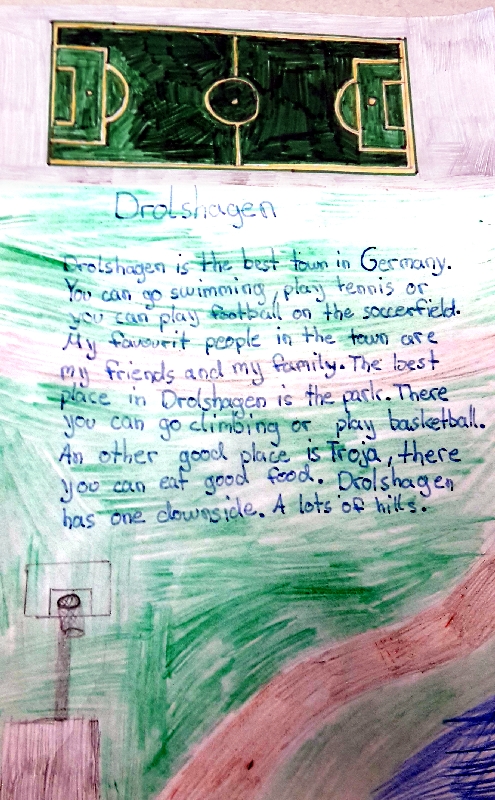 Drolshagen
Drolshagen is the best town in Germany.
You can go swimming, play tennis or
you can play football on the soccerfield.
My favourit people in the town are
my friends and my family. The best
place in Drolshagen is the park. There
you can go climbing or play basketball.
An other good place is Troja, there
you can eat good food. Drolshagen
has one downside. A lots of hills.